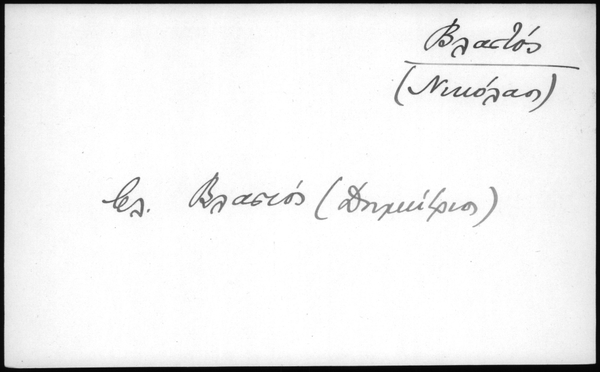 Βλαστός
(Νικόλαος)
βλ. Βλαστός (Δημήτριος)